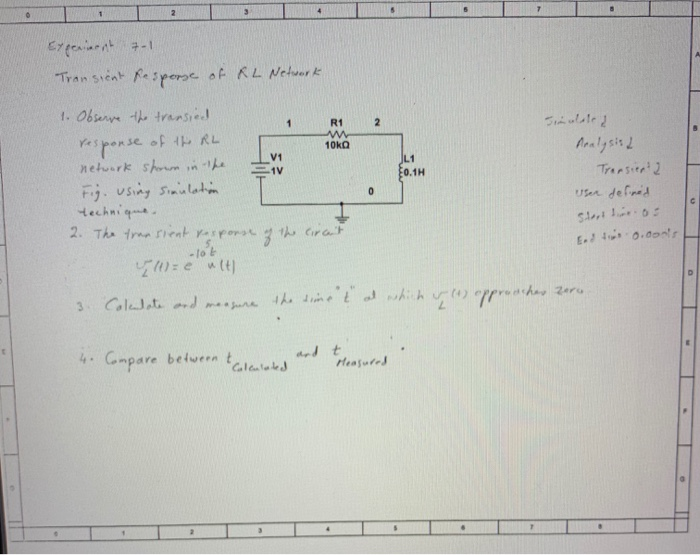 Experiment 7-1
Transient Response of RL Network
1. Observe the transied
response of the RL
network shown in the
Fig. using Simulation
technique.
1 R1 2
10kΩ
V1
1V
L1
0.1H
0
Simulate↓
Analysis↓
Transient↓
User defined
Start time = 0 S
End time = 0.0001s
2. The transient response of the circuit
v_L(t) = e^{-10^5 t} u(t)
3. Calculate and measure the time "t" at which v_L(t) approaches zero.
4. Compare between t_Calculated and t_Measured.